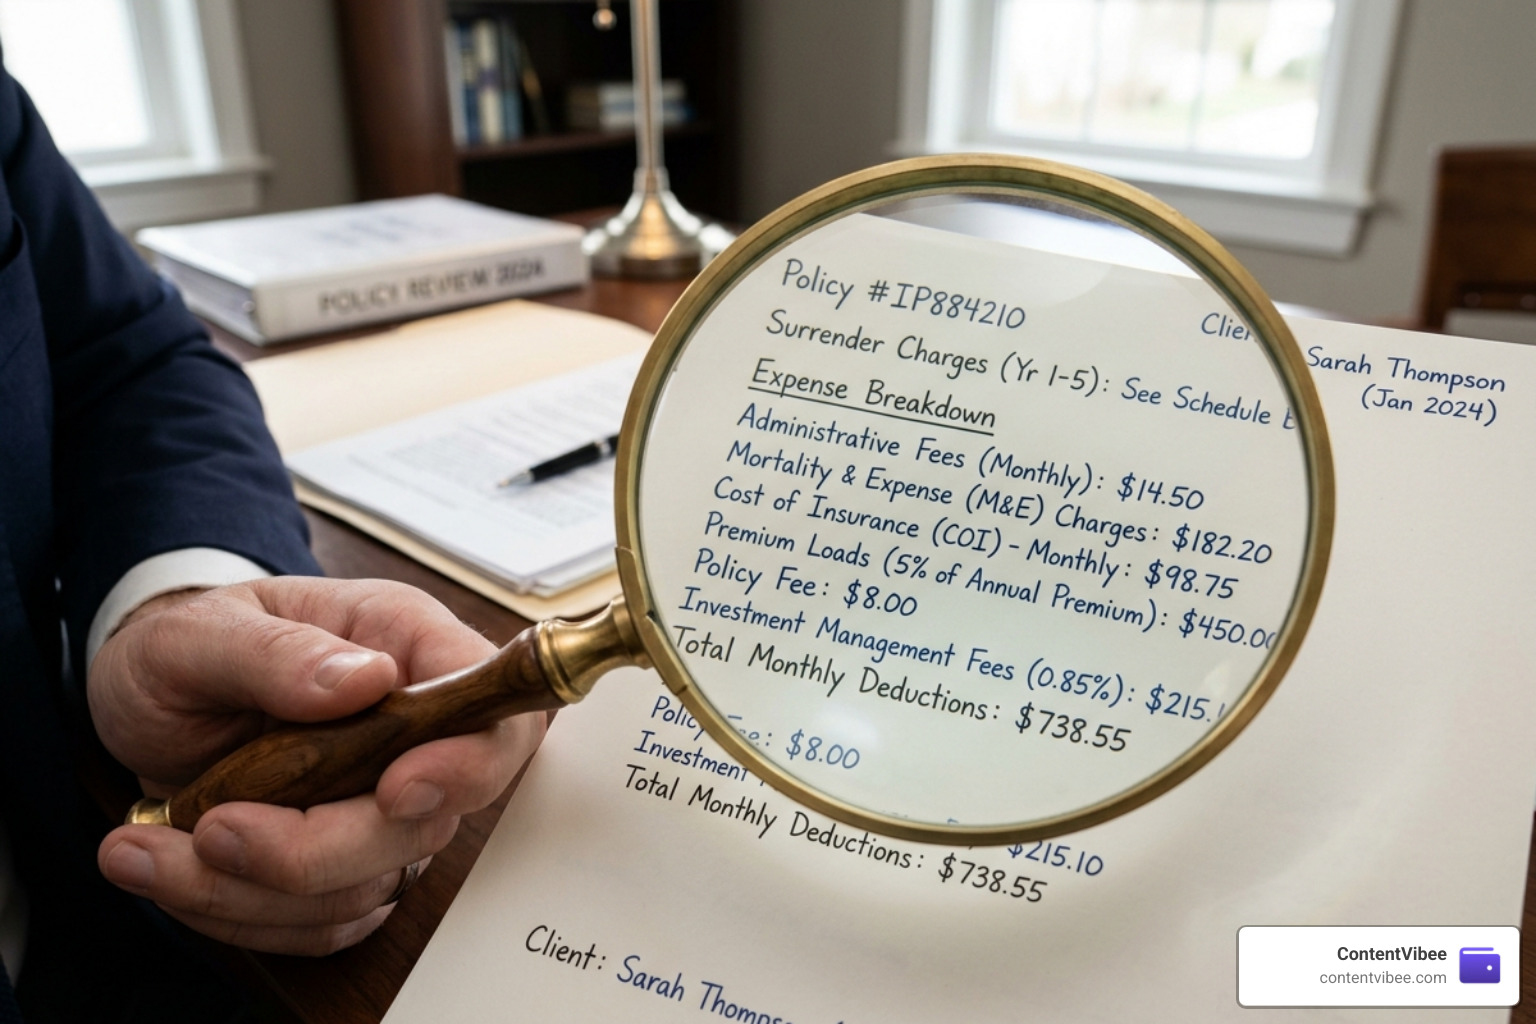 POLICY REVIEW 2024
Policy #IP884210
Clien
Sarah Thompson
(Jan 2024)
Surrender Charges (Yr 1-5): See Schedule
Expense Breakdown
Administrative Fees (Monthly): $14.50
Mortality & Expense (M&E) Charges: $182.20
Cost of Insurance (COI) - Monthly: $98.75
Premium Loads (5% of Annual Premium): $450.00
Policy Fee: $8.00
Investment Management Fees (0.85%): $215.
Total Monthly Deductions: $738.55
Policy Fee: $8.00
Investment
$215.10
Total Monthly Deductions: $738.55
Client: Sarah Thompson
ContentVibee
contentvibee.com